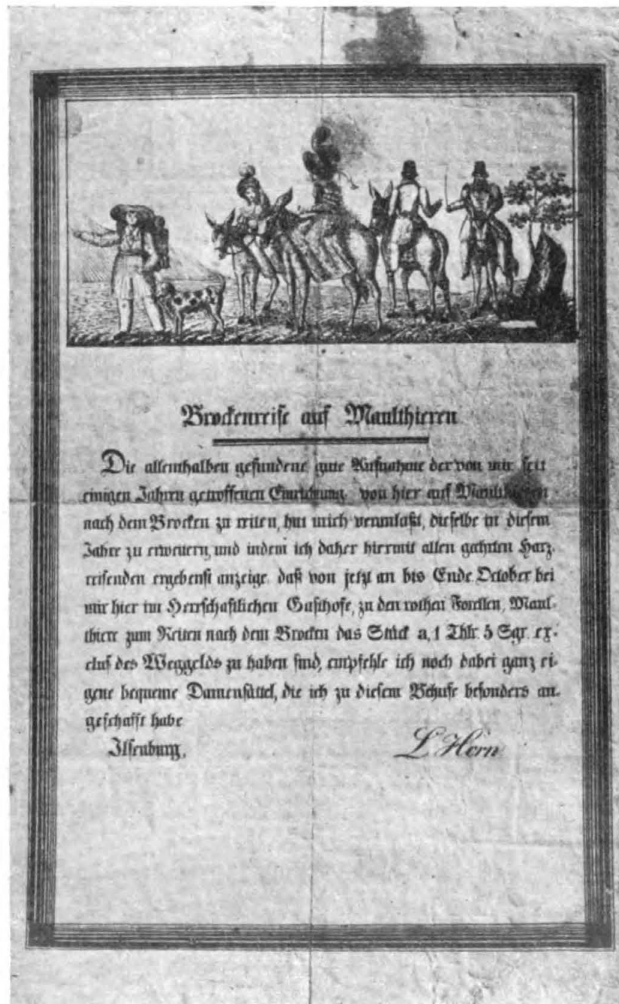 Brockenreise auf Maulthieren
Die allenthalben gefundene gute Aufnahme der von mir seit
einigen Jahren getroffenen Einrichtung von hier auf Maulthieren
nach dem Brocken zu reiten, hat mich veranlaßt, dieselbe in diesem
Jahre zu erneuern, und indem ich daher hiermit allen geehrten Harz-
reisenden ergebenst anzeige, daß von jetzt an bis Ende October bei
mir hier im Herrschaftlichen Gasthofe, zu den rothen Forellen, Maul-
thiere zum Reiten nach dem Brocken das Stück a, 1 Thlr. 5 Sgr. ex-
clus des Weggelds zu haben sind, empfehle ich noch dabei ganz ei-
gene bequeme Damensättel, die ich zu diesem Behufe besonders an-
geschafft habe
Ilsenburg, L Horn